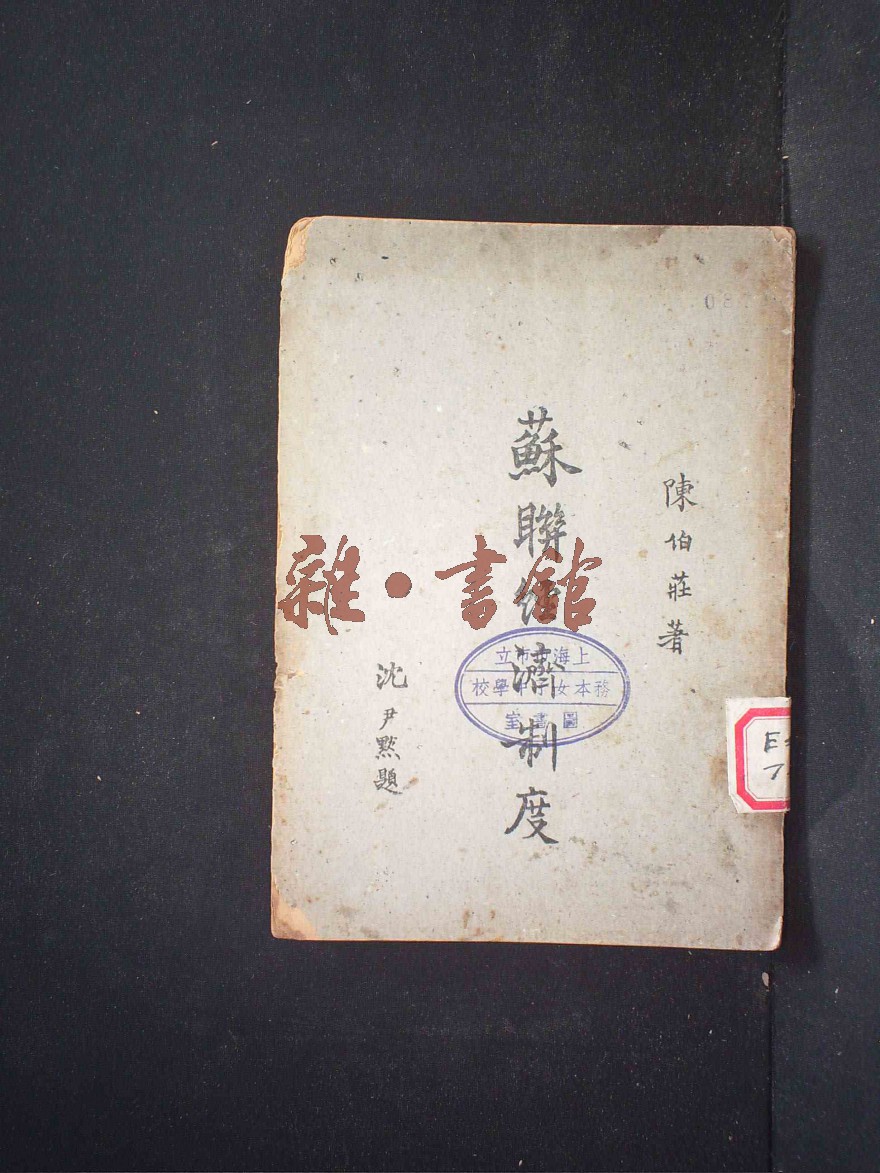 陳伯莊著
蘇聯經濟制度
沈尹默題
雜·書館
上海市市立
務本女子中學校
圖書室